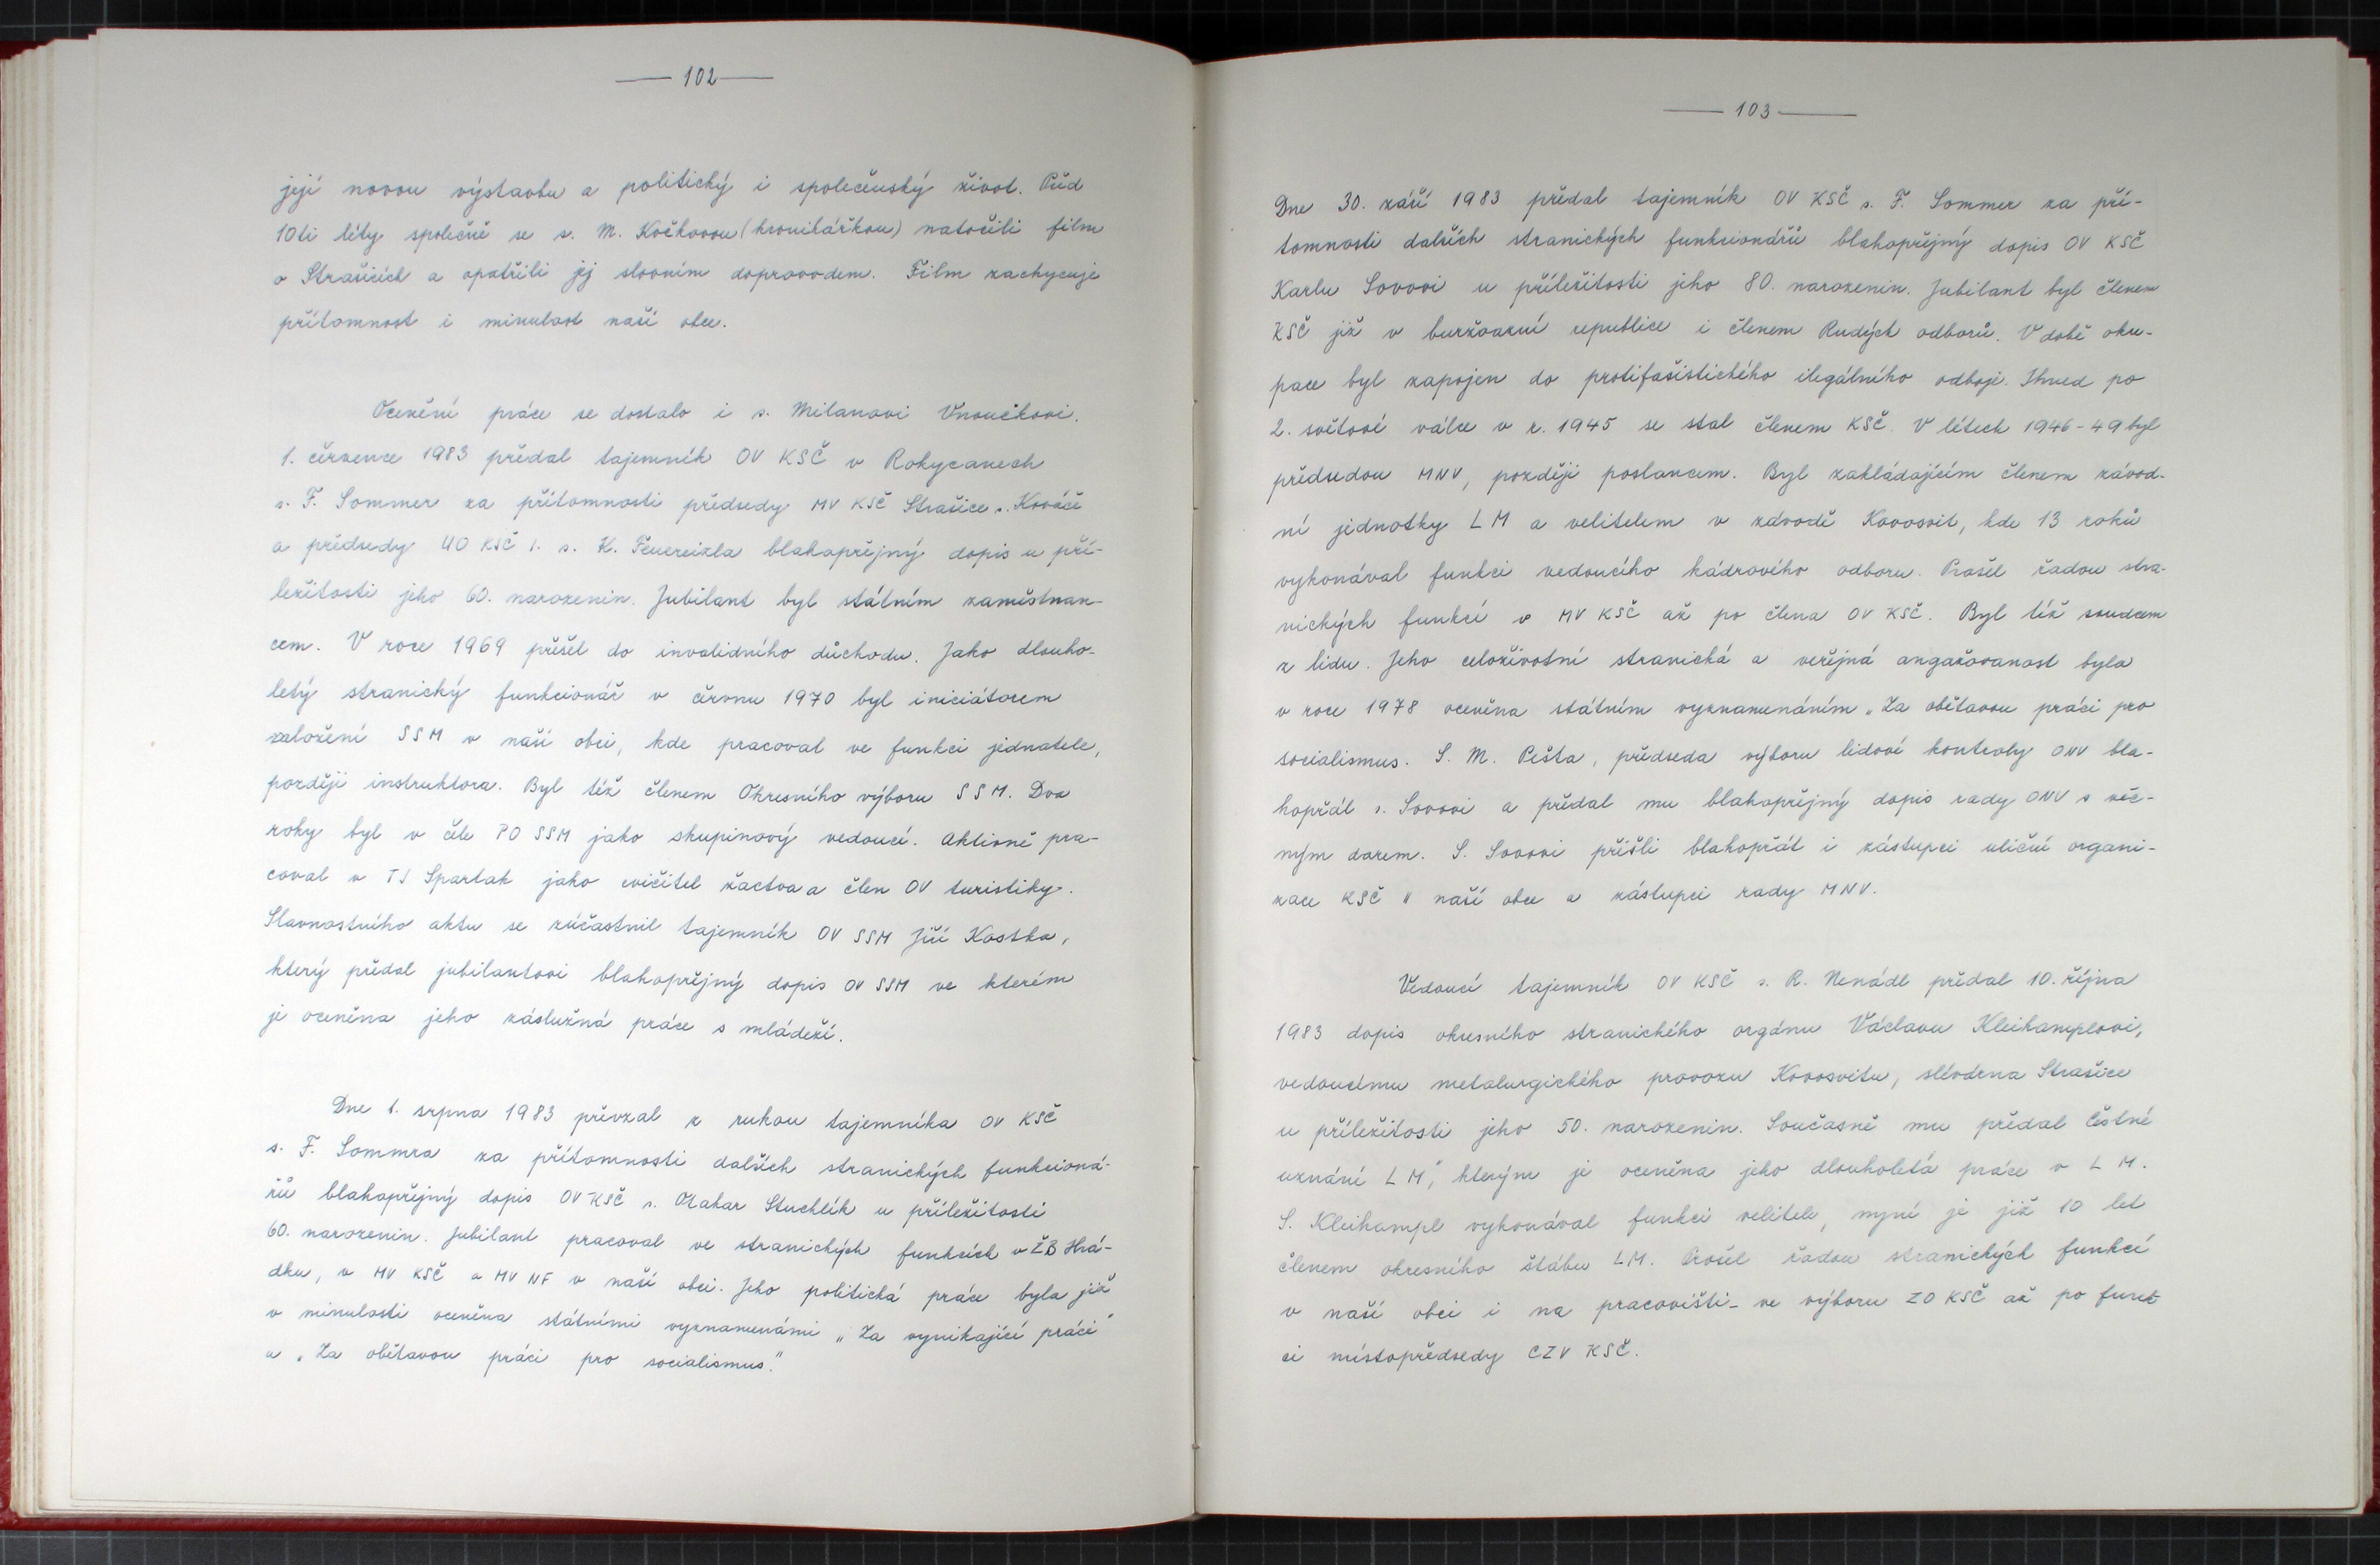 102
její novou výstavbu a politický i společenský život. Před
10ti léty společně se s. M. Kočkovou (kronikářkou) natočili film
o Strašicích a opatřili jej slovním doprovodem. Film zachycuje
přítomnost i minulost naší obce.
Ocenění práce se dostalo i s. Milanovi Vnoučkovi.
1. července 1983 předal tajemník OV KSČ v Rokycanech
s. F. Sommer za přítomnosti předsedy MV KSČ Strašice s. Kováče
a předsedy UO KSČ 1. s. K. Feuereizla blahopřejný dopis u pří-
ležitosti jeho 60. narozenin. Jubilant byl státním zaměstnan-
cem. V roce 1969 přešel do invalidního důchodu. Jako dlouho-
letý stranický funkcionář v červnu 1970 byl iniciátorem
založení SSM v naší obci, kde pracoval ve funkci jednatele,
později instruktora. Byl též členem Okresního výboru SSM. Dva
roky byl v čele PO SSM jako skupinový vedoucí. Aktivně pra-
coval v TJ Spartak jako cvičitel žactva a člen OV turistiky.
Slavnostního aktu se zúčastnil tajemník OV SSM Jiří Kostka,
který předal jubilantovi blahopřejný dopis OV SSM ve kterém
je oceněna jeho záslužná práce s mládeží.
Dne 1. srpna 1983 převzal z rukou tajemníka OV KSČ
s. F. Sommra za přítomnosti dalších stranických funkcioná-
řů blahopřejný dopis OV KSČ s. Otakar Stuchlík u příležitosti
60. narozenin. Jubilant pracoval ve stranických funkcích v ŽB Hrá-
dku, v MV KSČ a MV NF v naší obci. Jeho politická práce byla již
v minulosti oceněna státními vyznamenánmi „Za vynikající práci"
a „Za obětavou práci pro socialismus."
103
Dne 30. září 1983 předal tajemník OV KSČ s. F. Sommer za pří-
tomnosti dalších stranických funkcionářů blahopřejný dopis OV KSČ
Karlu Sovovi u příležitosti jeho 80. narozenin. Jubilant byl členem
KSČ již v buržoazní republice i členem Rudých odborů. V době oku-
pace byl zapojen do protifašistického ilegálního odboje. Ihned po
2. světové válce v r. 1945 se stal členem KSČ. V létech 1946-49 byl
předsedou MNV, později poslancem. Byl zakládajícím členem závod-
ní jednotky LM a velitelem v závodě Kovosvit, kde 13 roků
vykonával funkci vedoucího kádrového odboru. Prošel řadou stra-
nických funkcí v MV KSČ až po člena OV KSČ. Byl též soudcem
z lidu. Jeho celoživotní stranická a veřejná angažovanost byla
v roce 1978 oceněna státním vyznamenáním „Za obětavou práci pro
socialismus. S. M. Pešta, předseda výboru lidové kontroly ONV bla-
hopřál s. Sovovi a předal mu blahopřejný dopis rady ONV s věc-
ným darem. S. Sovovi přišli blahopřát i zástupci uliční organi-
zace KSČ v naší obce a zástupci rady MNV.
Vedoucí tajemník OV KSČ s. R. Nenádl předal 10. října
1983 dopis okresního stranického orgánu Václavu Kleikamplovi,
vedoucímu metalurgického provozu Kovosvitu, slévárna Strašice
u příležitosti jeho 50. narozenin. Současně mu předal Čestné
uznání LM", kterým je oceněna jeho dlouholetá práce v LM.
S. Kleikampl vykonával funkci velitele, nyní je již 10 let
členem okresního štábu LM. Prošel řadou stranických funkcí
v naší obci i na pracovišti - ve výboru ZO KSČ až po funk
ci místopředsedy CZV KSČ.